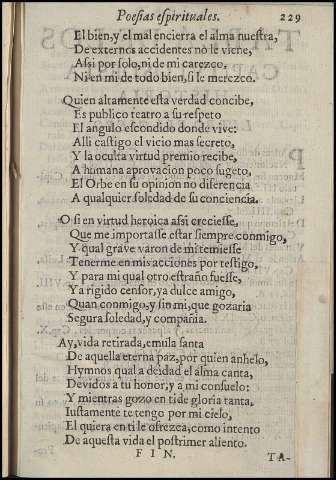 Poesias espirituales. 229
El bien, y el mal encierra el alma nuestra,
De externos accidentes no le viene,
Assi por solo, ni de mi carezco,
Ni en mi de todo bien, si le merezco.
Quien altamente esta verdad concibe,
Es publico teatro a su respeto
El angulo escondido donde vive:
Alli castigo el vicio mas secreto,
Y la oculta virtud premio recibe,
A humana aprovacion poco sugeto,
El Orbe en su opinion no diferencia
A qualquier soledad de su conciencia.
O si en virtud heroica assi creciesse,
Que me importasse estar siempre conmigo,
Y qual grave varon de mi temiesse
Tenerme en mis acciones por testigo,
Y para mi qual otro estraño fuesse,
Ya rigido censor, ya dulce amigo,
Quan conmigo, y sin mi, que gozaria
Segura soledad, y compañia.
Ay, vida retirada, emula santa
De aquella eterna paz, por quien anhelo,
Hymnos qual a deidad el alma canta,
Devidos a tu honor, y a mi consuelo:
Y mientras gozo en ti de gloria tanta,
Iustamente te tengo por mi cielo,
El quiera en ti le ofrezca, como intento
De aquesta vida el postrimer aliento.
F I N.
TA-